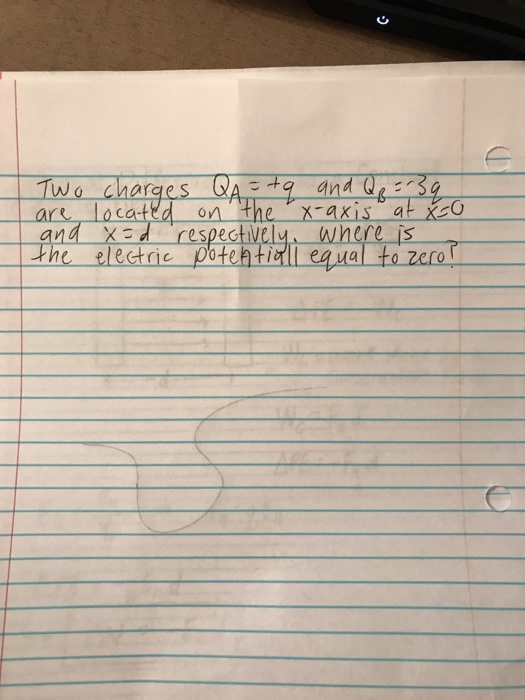 Two charges QA = +q and QB = -3q
are located on the x-axis at x=0
and x=d respectively. Where is
the electric potentiall equal to zero?